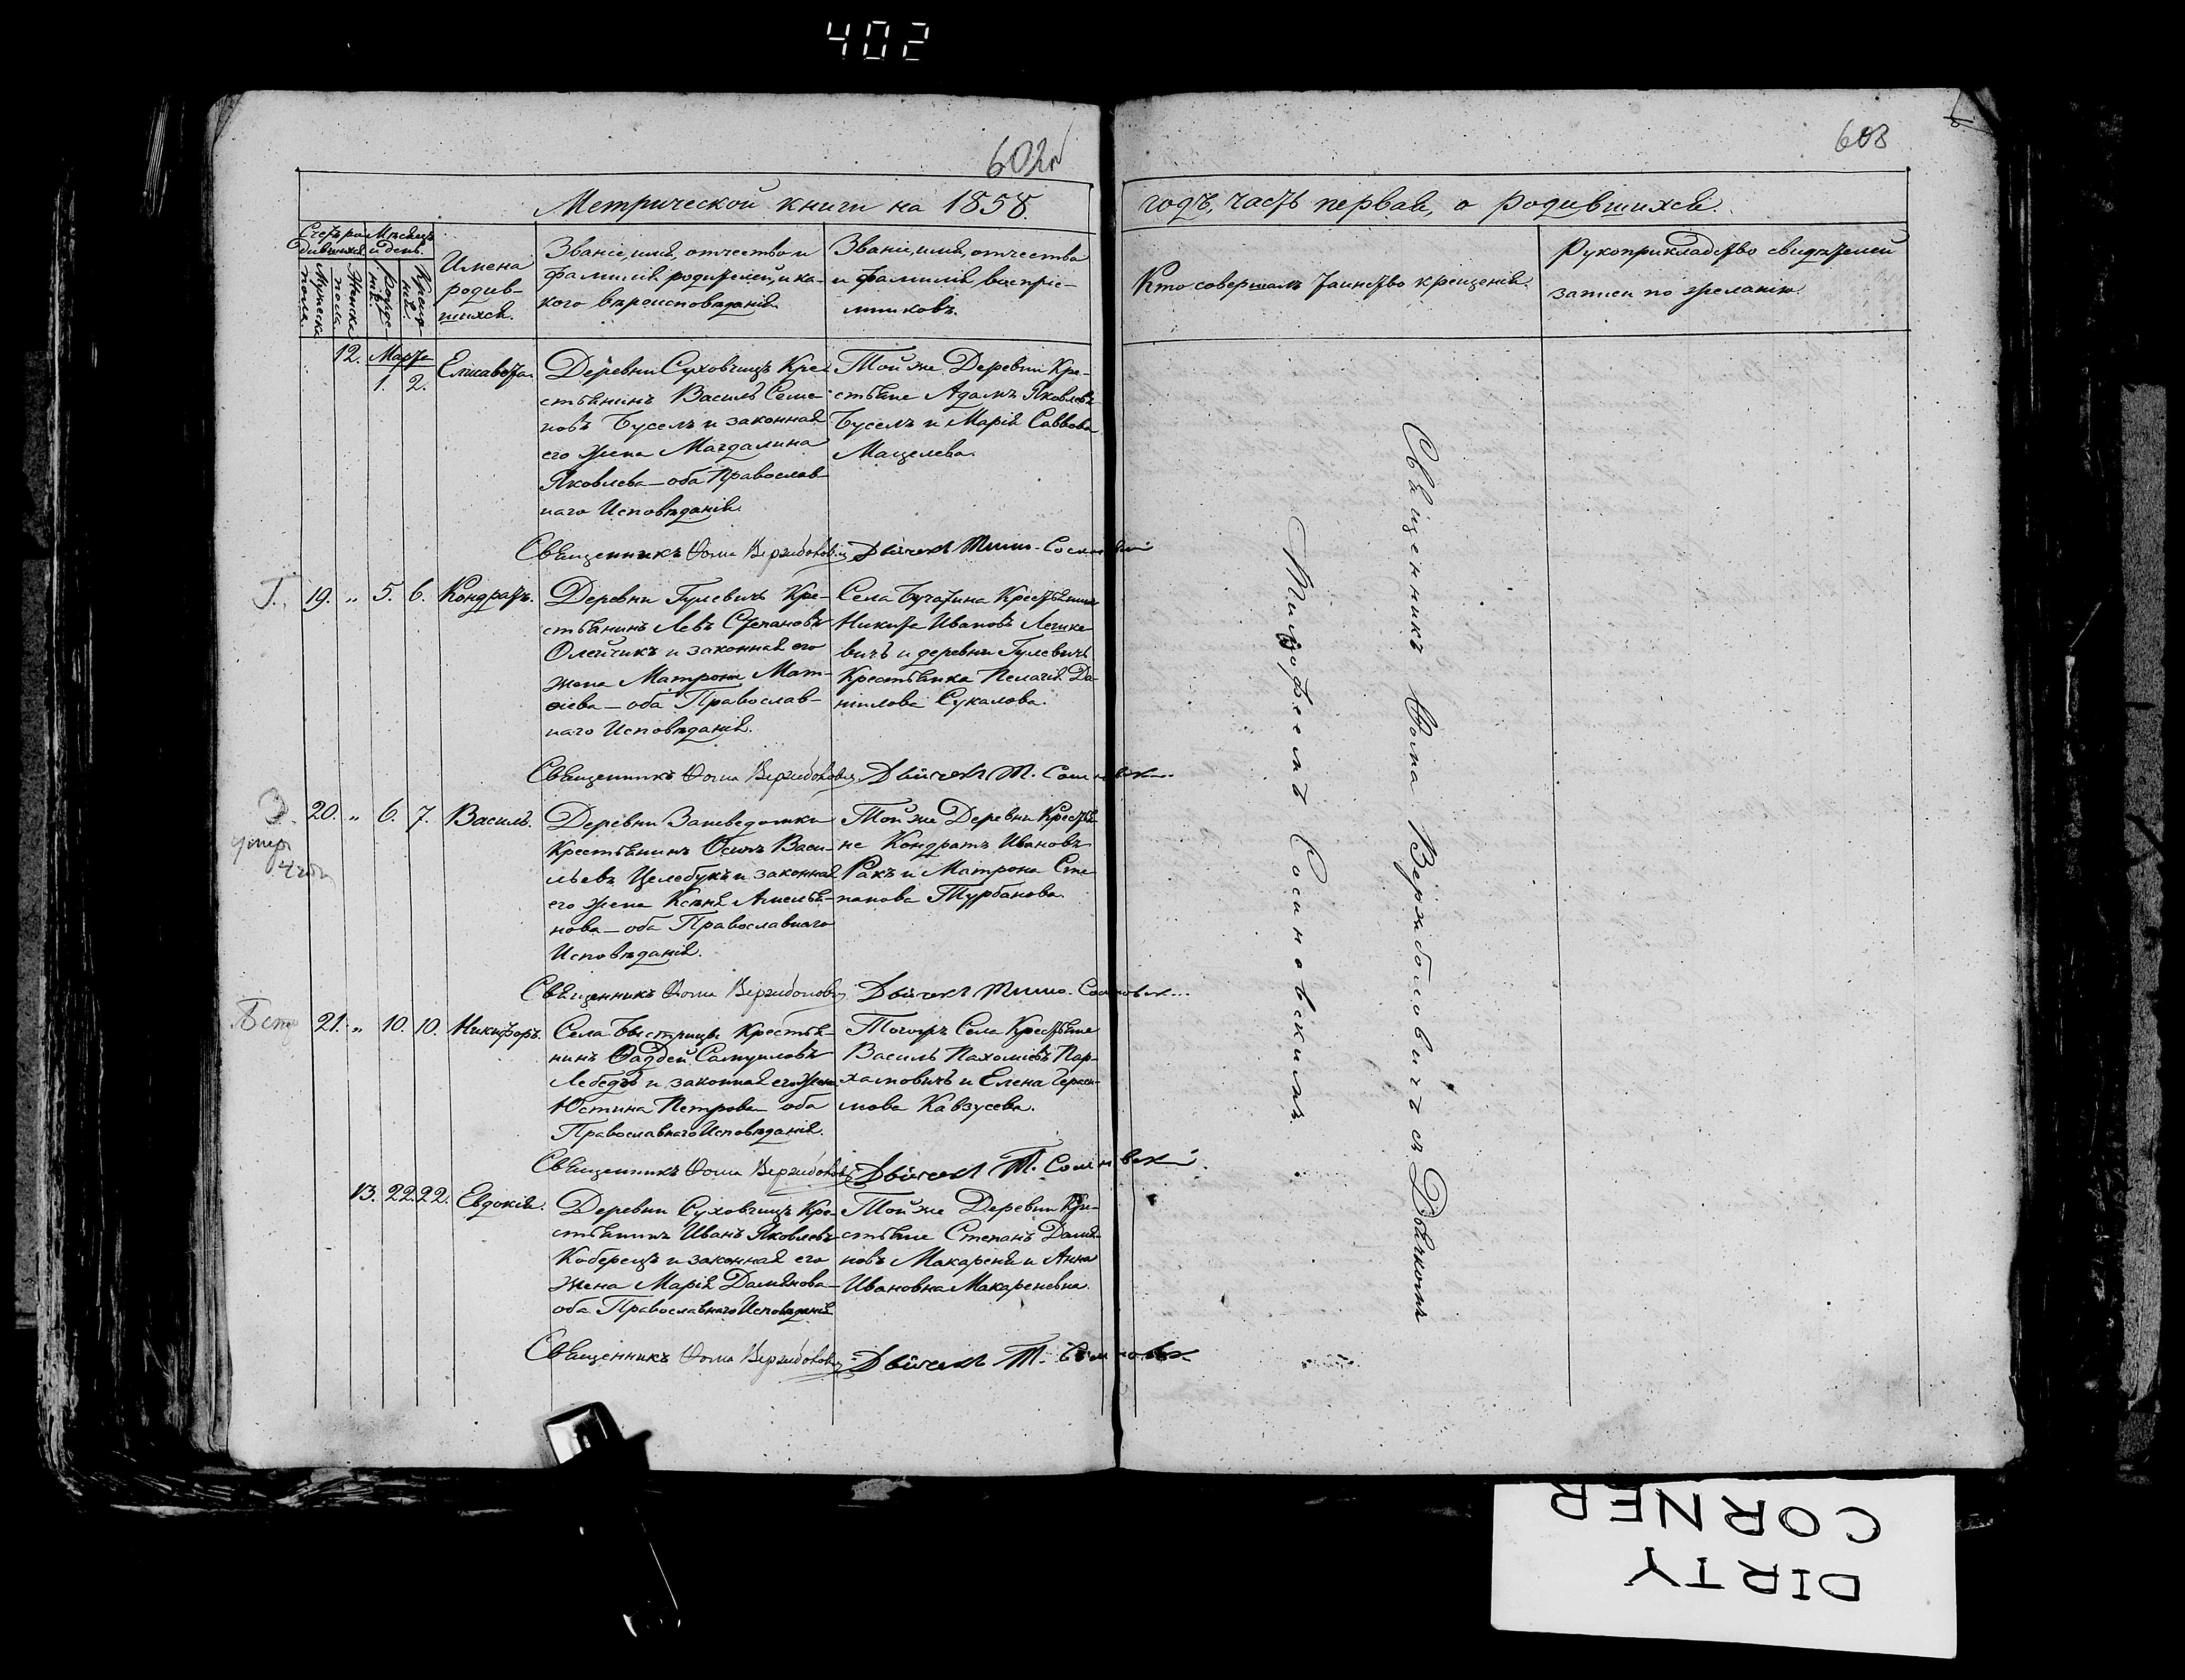 402
602
603
Метрической книги на 1858.
годъ, часть первая, о родившихся.
Счетъ ро-
дившихся.
Мѣсяцъ
и день.
Мужеска
пола.
Женска
пола.
Рожде-
нія.
Креще-
нія.
Имена
родив-
шихся.
Званіе, имя, отчество и
фамилія родителей, и ка-
кого вѣроисповѣданія.
Званіе, имя, отчество
и фамилія воспріе-
мниковъ.
Кто совершалъ таинство крещенія.
Рукоприкладство свидѣтелей
записи по желанію.
12. Марта
1. 2. Елисавета.
Деревни Суховчицъ Кре-
стьянинъ Василь Семе-
новъ Буселъ и законная
его жена Магдалина
Яковлева — оба Православ-
наго Исповѣданія.
Той же Деревни Кре-
стьяне Адамъ Яковлевъ
Буселъ и Марія Саввова
Мацелева.
Священникъ Ѳома Вержболовичъ Дьячекъ Тимо. Сосиновскій
Г. 19. „ 5. 6. Кондратъ.
Деревни Гулевичъ Кре-
стьянинъ Левъ Степановъ
Олейчикъ и законная его
жена Матрона Мат-
ѳеева — оба Православ-
наго Исповѣданія.
Села Бучатина Крестьянинъ
Никита Ивановъ Лешке-
вичъ и деревни Гулевичъ
Крестьянка Пелагія Да-
нилова Сукалова.
Священникъ Ѳома Вержболовичъ Дьячекъ Т. Сосиновск.
З.
умеръ
20. „ 6. 7. Василь.
Деревни Заневедомки
Крестьянинъ Осипъ Васи-
льевъ Целебукъ и законная
его жена Ксенія Амелья-
нова — оба Православнаго
Исповѣданія.
Той же Деревни Крестья-
не Кондратъ Ивановъ
Ракъ и Матрона Сте-
панова Турбанова.
Священникъ Ѳома Вержболовичъ Дьячекъ Тимо. Сосиновск.
Быстр 21. „ 10. 10. Никифоръ.
Села Быстрицы Крестья-
нинъ Ѳаддей Самуиловъ
Лебедь и законная его жена
Юстина Петрова — оба
Православнаго Исповѣданія.
Тогожъ Села Крестьяне
Василь Пахоміевъ Пар-
хамовичъ и Елена Гераси-
мова Кавзусева.
Священникъ Ѳома Вержболовичъ Дьячекъ Т. Сосиновскій
13. 22. 22. Евдокія.
Деревни Суховчицъ Кре-
стьянинъ Иванъ Яковлевъ
Коберецъ и законная его
жена Марія Даміанова —
оба Православнаго Исповѣданія.
Той же Деревни Кре-
стьяне Степанъ Дамія-
новъ Макареня и Анна
Ивановна Макаревна.
Священникъ Ѳома Вержболовичъ Дьячекъ Т. Сосиновск.
Священникъ Ѳома Вержболовичъ съ Дьячкомъ
Тимоѳеемъ Сосиновскимъ.
DIRTY
CORNER